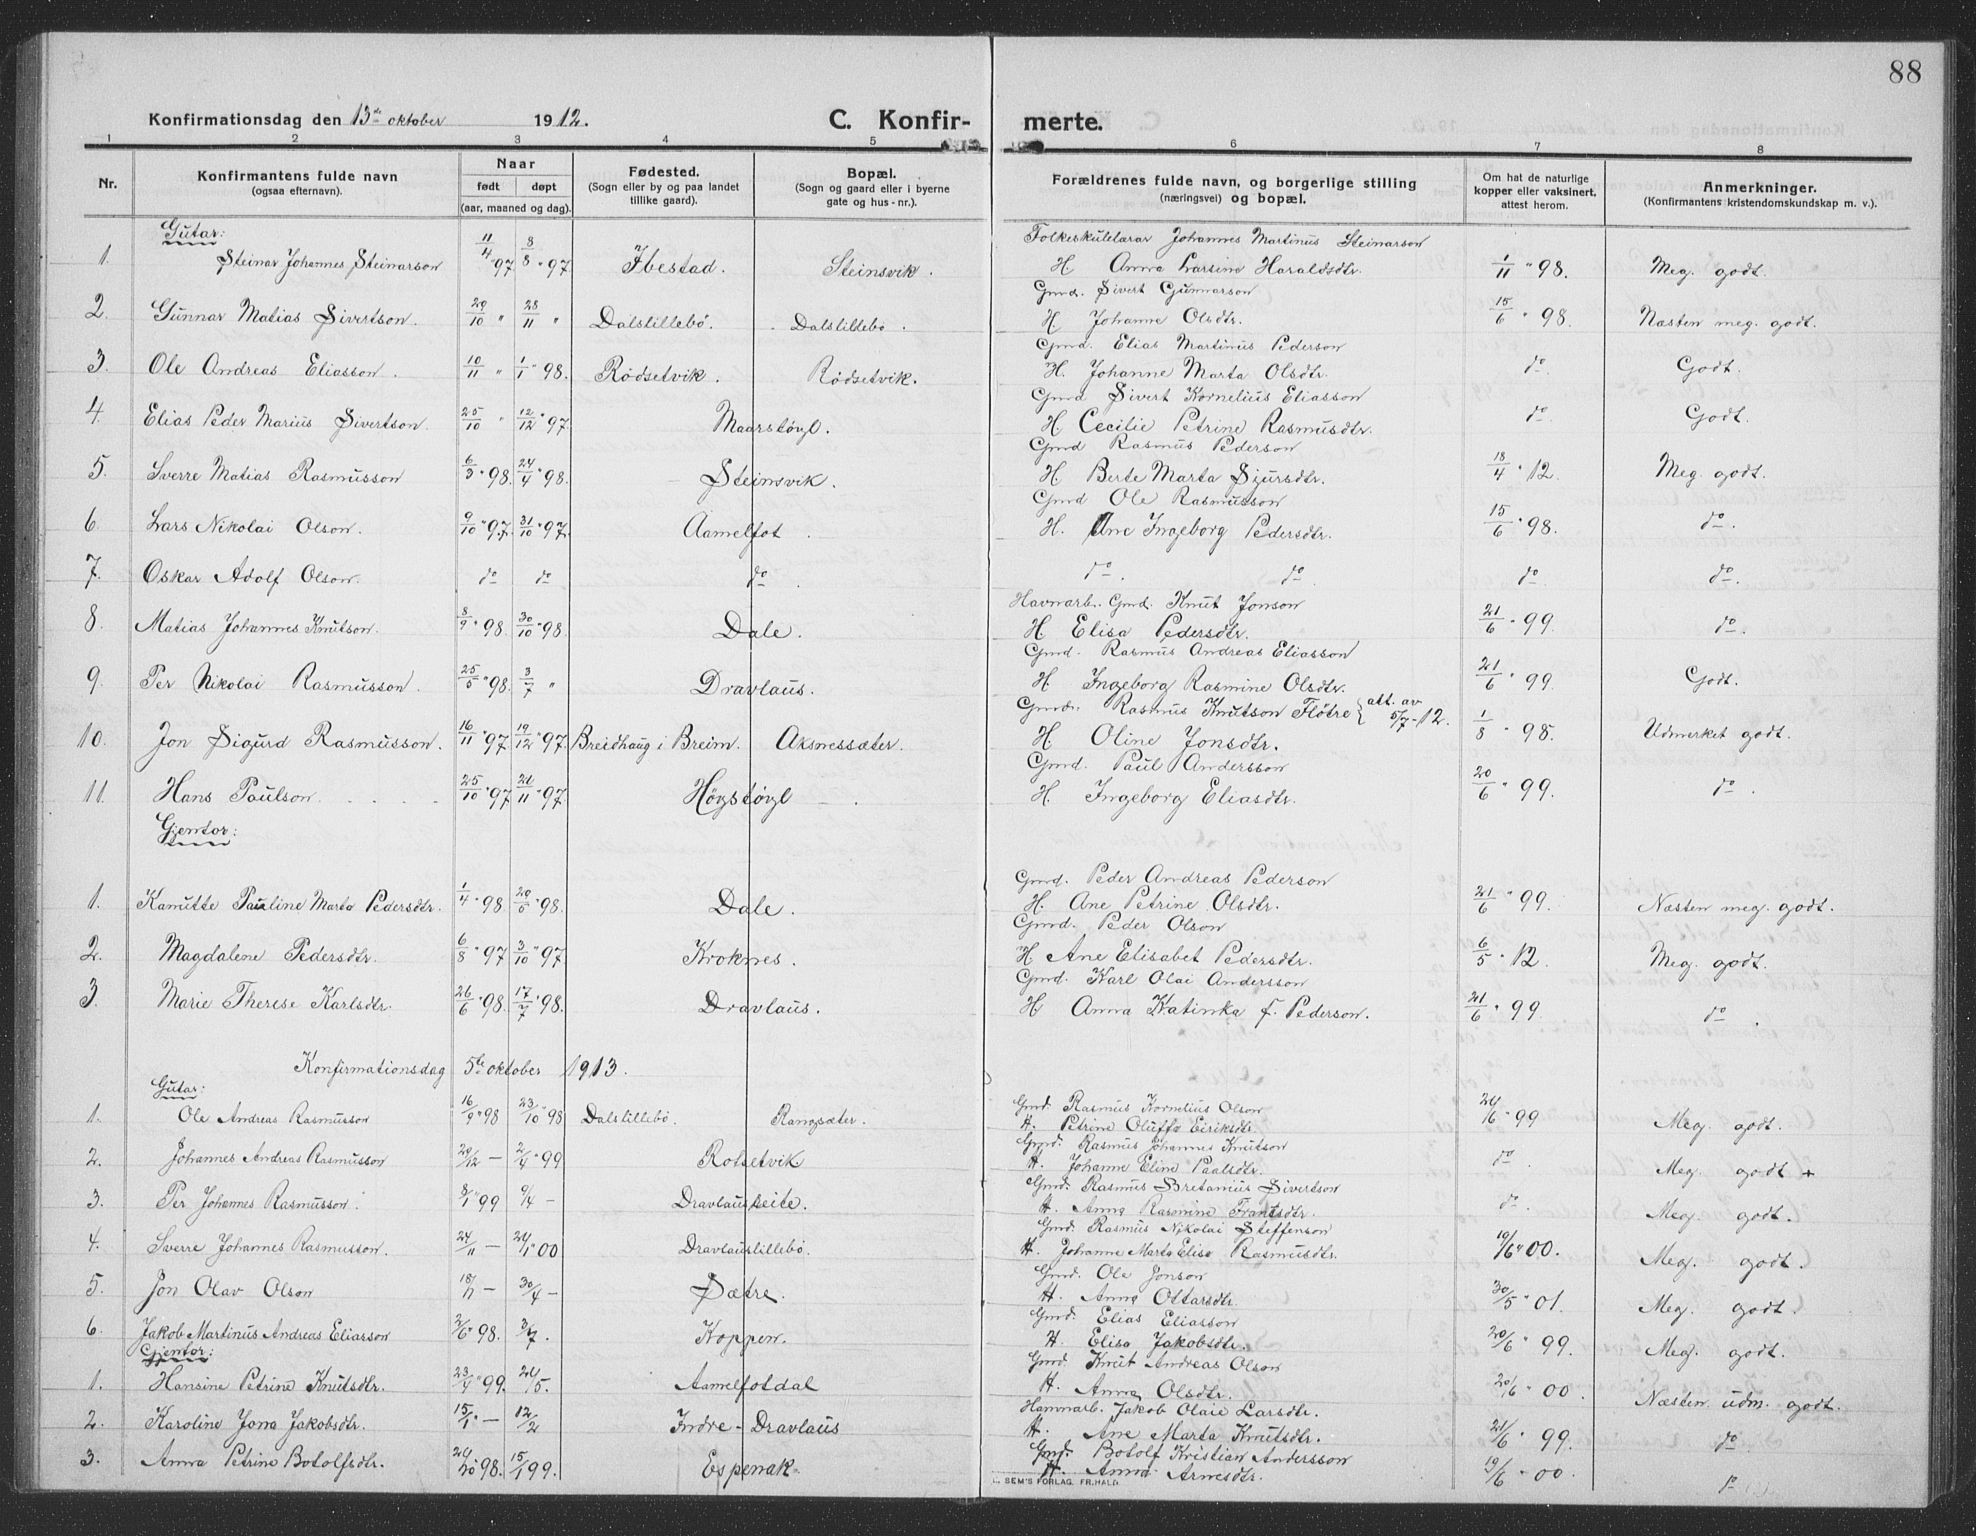 88
Konfirmationsdag den 13de oktober 1912. C. Konfirmerte.
1 2 3 4 5 6 7 8
Nr. Konfirmantens fulde navn (ogsaa efternavn). Naar født døpt (aar, maaned og dag). Fødested. (Sogn eller by og paa landet tillike gaard). Bopæl. (Sogn og gaard eller i byerne gate og hus-nr.). Forældrenes fulde navn, og borgerlige stilling (næringsvei) og bopæl. Om hat de naturlige kopper eller vaksinert, attest herom. Anmerkninger. (Konfirmantens kristendomskundskap m. v.).
Gutar:
Folkeskulelærar Johannes Martinus Steinarson
1. Steinar Johannes Steinarson 11/4 "97 8/8 "97 Ibestad. Steinsvik. H Anna Larsine Haraldsdtr. 1/11 "98. Meg. godt.
Gmd. Sivert Gunnarson
2. Gunnar Matias Sivertson. 29/10 " 28/11 " Dalslillebö. Dalslillebö. H Johanne Olsdtr. 15/6 "98. Næsten meg. godt.
Gmd. Elias Martinus Pederson
3. Ole Andreas Eliasson. 10/11 " 1/1 "98. Rödsetvik. Rödsetvik. H. Johanne Marta Olsdtr. do Godt.
Gmd Sivert Kornelius Eliasson
4. Elias Peder Marius Sivertson. 25/10 " 12/12 "97. Maarstöyl. H Cecilie Petrine Rasmusdtr. do Godt.
Gmd Rasmus Pederson
5. Sverre Matias Rasmusson 6/3 "98. 24/4 "98. Steinsvik. H Berte Marta Sjursdtr. 18/4 "12. Meg. godt.
Gmd Ole Rasmusson
6. Lars Nikolai Olson. 9/10 "97. 31/10 "97. Aamelfot. H. Ane Ingeborg Pedersdtr. 15/6 "98. do.
7. Oskar Adolf Olson. do do do do. do. do do.
Havnarb. Gmd. Knut Jonson
8. Matias Johannes Knutson. 8/9 "98. 30/10 "98. Dale. H Elisa Pedersdtr. 21/6 "99. do.
Gmd. Rasmus Andreas Eliasson
9. Per Nikolai Rasmusson. 25/5 "98. 3/7 " Dravlaus. H Ingeborg Rasmine Olsdtr. 21/6 "99. Godt.
Gmd. Rasmus Knutson Flötre { att. av 5/7-12.
10. Jon Sigurd Rasmusson. 16/11 "97 19/12 "97. Breidhaug i Breim. Aksnessæter. H Oline Jonsdtr. 1/8 "98. Udmerket godt.
Gmd. Paul Andersson
11. Hans Paulson. 25/10 "97 21/11 "97. Höystöyl H. Ingeborg Eliasdtr. 20/6 "99. do.
Gjentor:
Gmd. Peder Andreas Pederson
1. Kanutte Pauline Marta Pedersdtr. 1/4 "98. 20/5 "98. Dale. H. Ane Petrine Olsdtr. 21/6 "99. Næsten meg. godt.
Gmd. Peder Olson
2. Magdalene Pedersdtr. 6/8 "97 3/10 "97. Kroknes. H Ane Elisabet Pedersdtr. 6/5 "12. Meg. godt.
Gmd. Karl Olai Andersson
3. Marie Therese Karlsdtr. 26/6 "98. 17/7 "98. Dravlaus. H Anna Katinka f. Pederson. 21/6 "99. do.
Konfirmationsdag 5te oktober 1913.
Gutar:
Gmd. Rasmus Kornelius Olson
1. Ole Andreas Rasmusson 16/9 "98 23/10 "98 Dalslillebö. Rangsæter. H. Petrine Oluffa Eiriksdtr. 21/6 "99 Meg. godt.
Gmd. Rasmus Johannes Knutson
2. Johannes Andreas Rasmusson 29/12 — 2/4 "99 Rotsetvik H. Johanne Eline Paalsdtr. do. Meg. godt +
Gmd. Rasmus Bretanius Sivertson
3. Per Johannes Rasmusson. 8/1 "99 9/4 — Dravlausleite. H. Anna Rasmine Frantsdtr. do. Meg. godt.
Gmd. Rasmus Nikolai Steffenson
4. Sverre Johannes Rasmusson. 24/11 — 21/1 "00 Dravlauslillebö. H. Johanne Marta Elise Rasmusdtr. 19/6 "00. Meg. godt.
Gmd. Ole Jonson
5. Jon Olav Olson — 30/4 — Sætre. H. Anna Ottarsdtr. 30/5 "01. Meg. godt.
Gmd. Elias Eliasson
6. Jakob Martinus Andreas Eliasson 2/6 "98. 3/7. Koppen. H. Elisa Jakobsdtr. 20/6 "99. Meg. godt.
Gjentor:
Gmd. Knut Andreas Olson
1. Hansine Petrine Knutsdtr. 23/4 "99. Aamelfotdal H. Anna Olsdtr. 20/6 "00. Næsten udm. godt.
Hamnarb. Jakob Olaie Larsdtr.
2. Karoline Jona Jakobsdtr. 15/1 "— 12/2 Indre-Dravlaus H. Ane Marta Knutsdtr. 21/6 "99. do.
Gmd. Botolf Kristian Andersson
3. Anna Petrine Botolfsdtr. 24/10 98. 15/1 99. Espenak. H. Anna Arnesdtr. 19/6 "00. do
SEM'S FORLAG, FR.HALD.